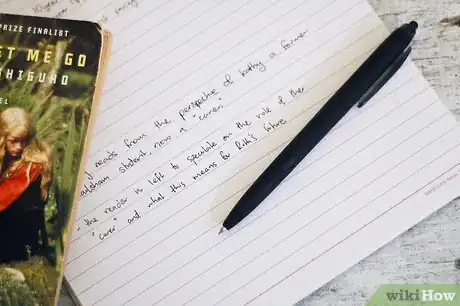 PRIZE FINALIST
ET ME GO
SHIGURO
EL
reads from the perspective of Kathy a former
student, now a "carer."
- the reader is left to speculate on the role of the
"carer" and what this means for Ruth's future
wikiHow